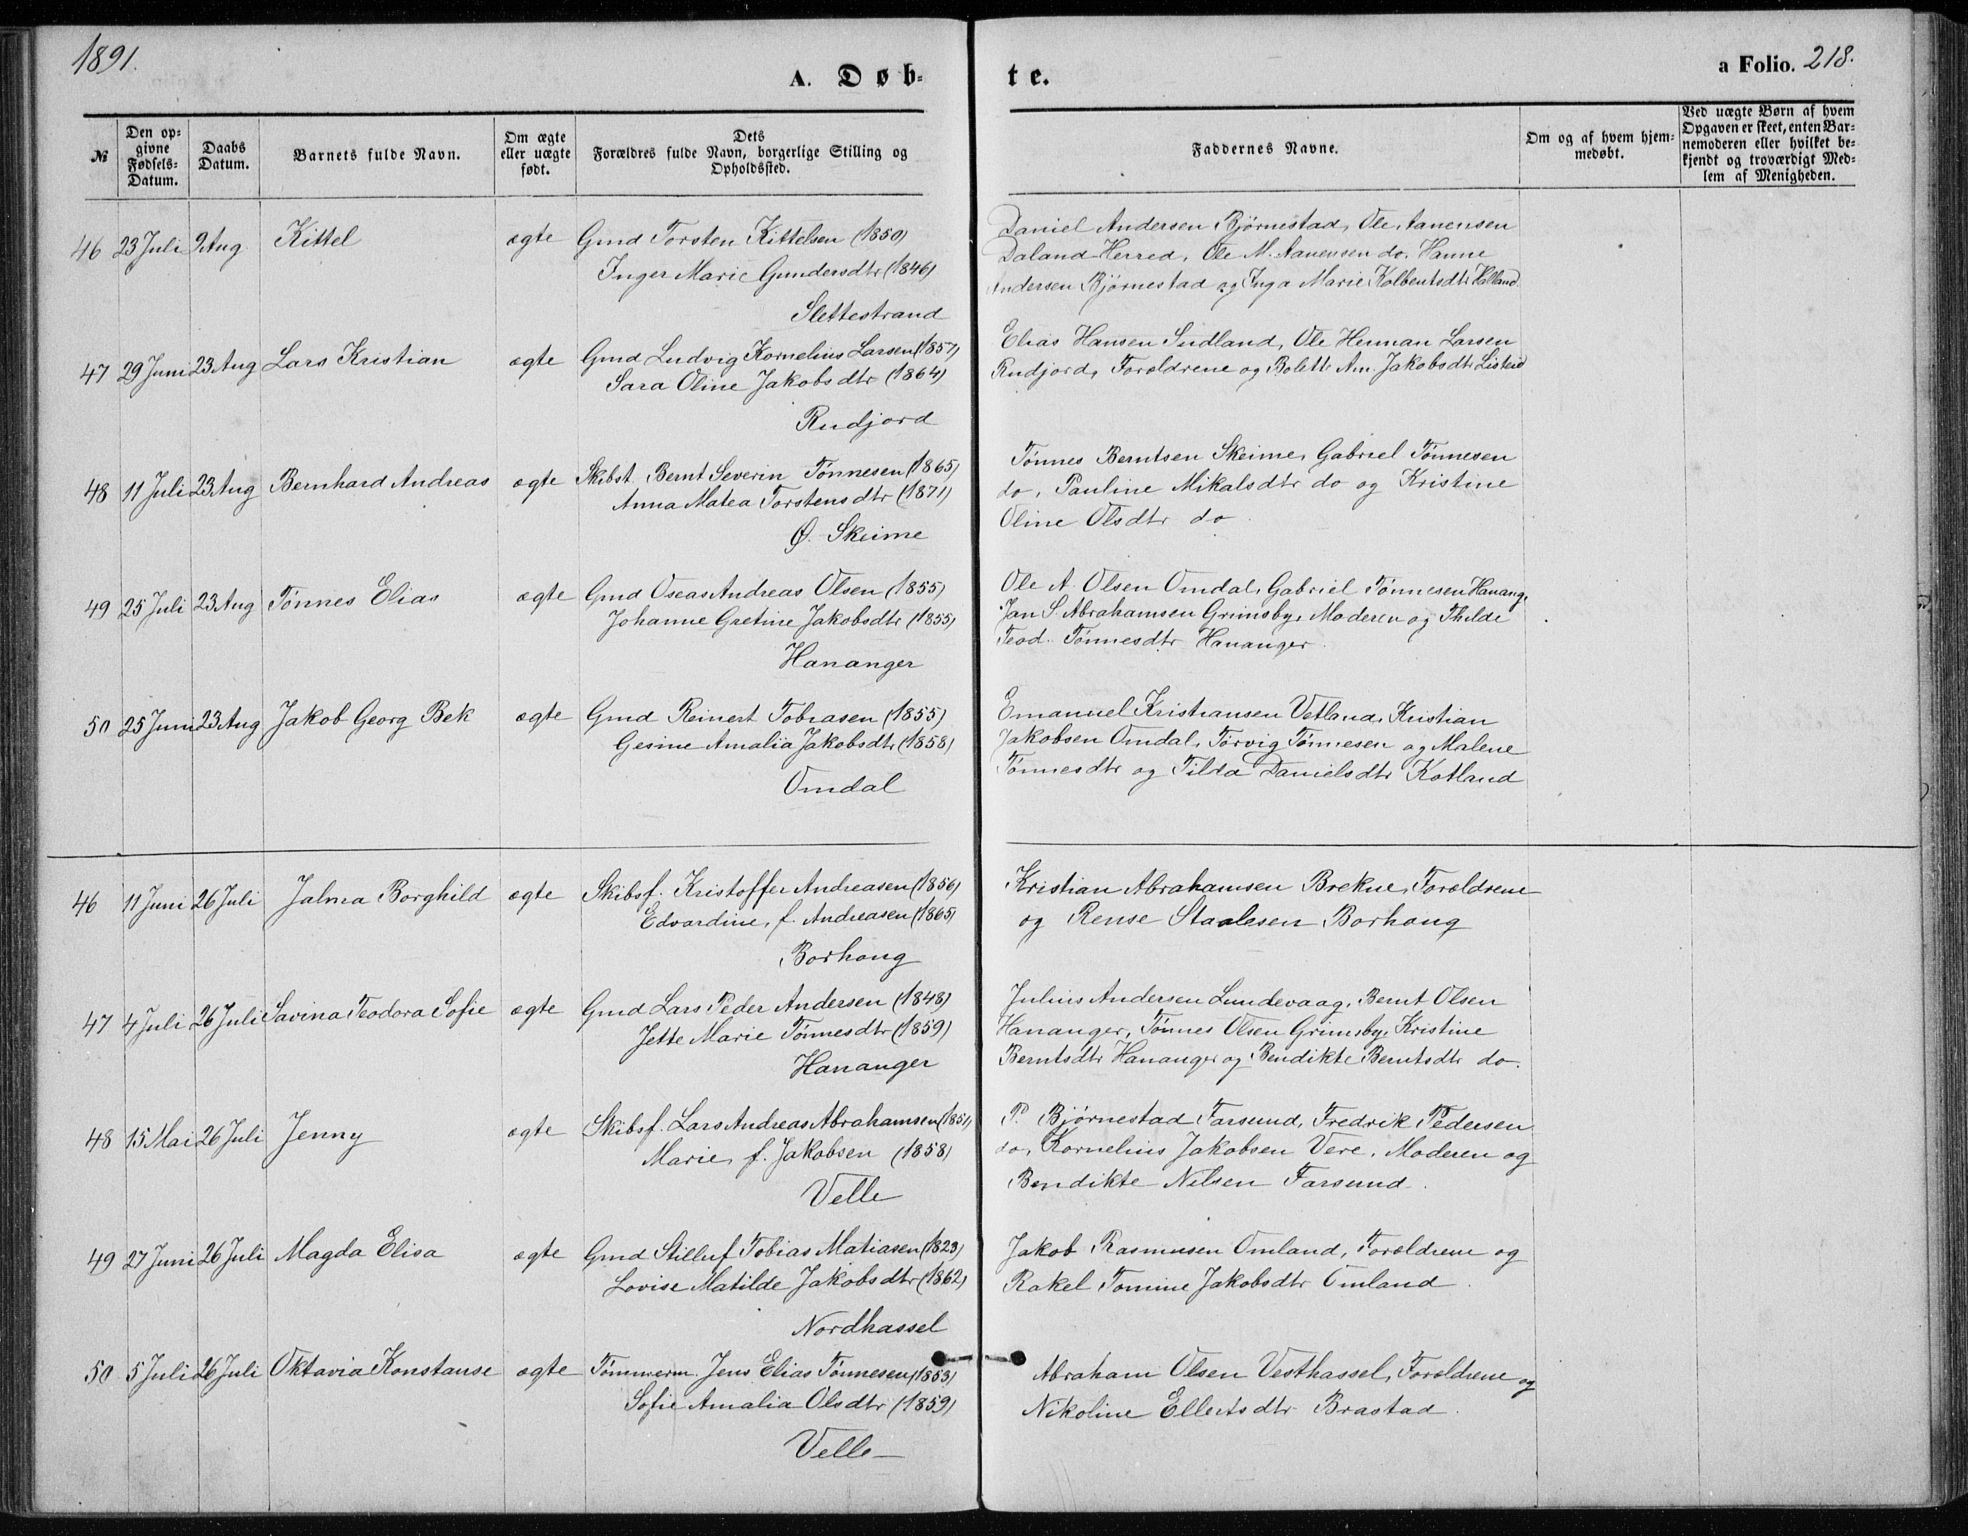 1891.
A. Døb-
te.
a Folio. 218.
№
Den op-
givne
Fødsels-
Datum.
Daabs
Datum.
Barnets fulde Navn.
Om ægte
eller uægte
født.
Dets
Forældres fulde Navn, borgerlige Stilling og
Opholdssted.
Faddernes Navne.
Om og af hvem hjem-
medøbt.
Ved uægte Børn af hvem
Opgaven er skeet, enten Bar-
nemoderen eller hvilket be-
kjendt og troværdigt Med-
lem af Menigheden.
46 23 Juli 9 Aug Kittel ægte Gmd Torsten Kittelsen (1850)
Inger Marie Gundersdtr (1846)
Slettestrand
Daniel Andersen Bjørnestad, Ole Aanensen
Daland Herred, Ole M. Aanensen do. Hanne
Andersen Bjørnestad og Inga Marie Kolbentsdtr Halland
47 29 Juni 23 Aug Lars Kristian ægte Gmd Ludvig Kornelius Larsen (1857)
Sara Oline Jakobsdtr (1864)
Rudjord
Elias Hansen Sudland, Ole Herman Larsen
Rudjord, Forældrene og Bolette Am. Jakobsdtr Listeid
48 11 Juli 23 Aug Bernhard Andreas ægte Skibst. Bernt Severin Tønnesen (1865)
Anna Matea Torstensdtr (1871)
Ø. Skeime
Tønnes Berntsen Skeime, Gabriel Tønnesen
do, Pauline Mikalsdtr do og Kristine
Oline Olsdtr do
49 25 Juli 23 Aug Tønnes Elias ægte Gmd Oseas Andreas Olsen (1855)
Johanne Gretine Jakobsdtr (1855)
Hananger
Ole A. Olsen Omdal, Gabriel Tønnesen Hanang,
Jan S. Abrahamsen Grimsby, Moderen og Thilde
Teod. Tønnesdtr Hananger.
50 25 Juni 23 Aug Jakob Georg Bek ægte Gmd Reinert Tobiasen (1855)
Gesine Amalia Jakobsdtr (1858)
Omdal
Emanuel Kristiansen Vetland, Kristian
Jakobsen Omdal, Torvig Tønnesen og Malene
Tønnesdtr og Tilda Danielsdtr Kotland
46 11 Juni 26 Juli Jalma Borghild ægte Skibsf. Kristoffer Andreasen (1856)
Edvardine, f. Andreasen (1865)
Borhaug
Kristian Abrahamsen Brekne, Forældrene
og Rense Staalesen Borhaug
47 4 Juli 26 Juli Savina Teodora Sofie ægte Gmd Lars Peder Andersen (1848)
Jette Marie Tønnesdtr (1859)
Hananger
Julius Andersen Lundevaag, Bernt Olsen
Hananger, Tønnes Olsen Grimsby, Kristine
Berntsdtr Hananger og Bendikte Berntsdtr do.
48 15 Mai 26 Juli Jenny ægte Skibsf. Lars Andreas Abrahamsen (1851)
Marie, f. Jakobsen (1858)
Velle
P. Bjørnestad Farsund, Fredrik Pedersen
do, Kornelius Jakobsen Vere, Moderen og
Bendikte Nilsen Farsund.
49 27 Juni 26 Juli Magda Elisa ægte Gmd Stilluf Tobias Matiasen (1823)
Lovise Matilde Jakobsdtr (1862)
Nordhassel
Jakob Rasmusen Omland, Forældrene og
Rakel Tomine Jakobsdtr Omland.
50 5 Juli 26 Juli Oktavia Konstanse ægte Tømmerm. Jens Elias Tønnesen (1853)
Sofie Amalia Olsdtr (1859)
Velle
Abraham Olsen Vesthassel, Forældrene og
Nikoline Ellertsdtr Brastad.